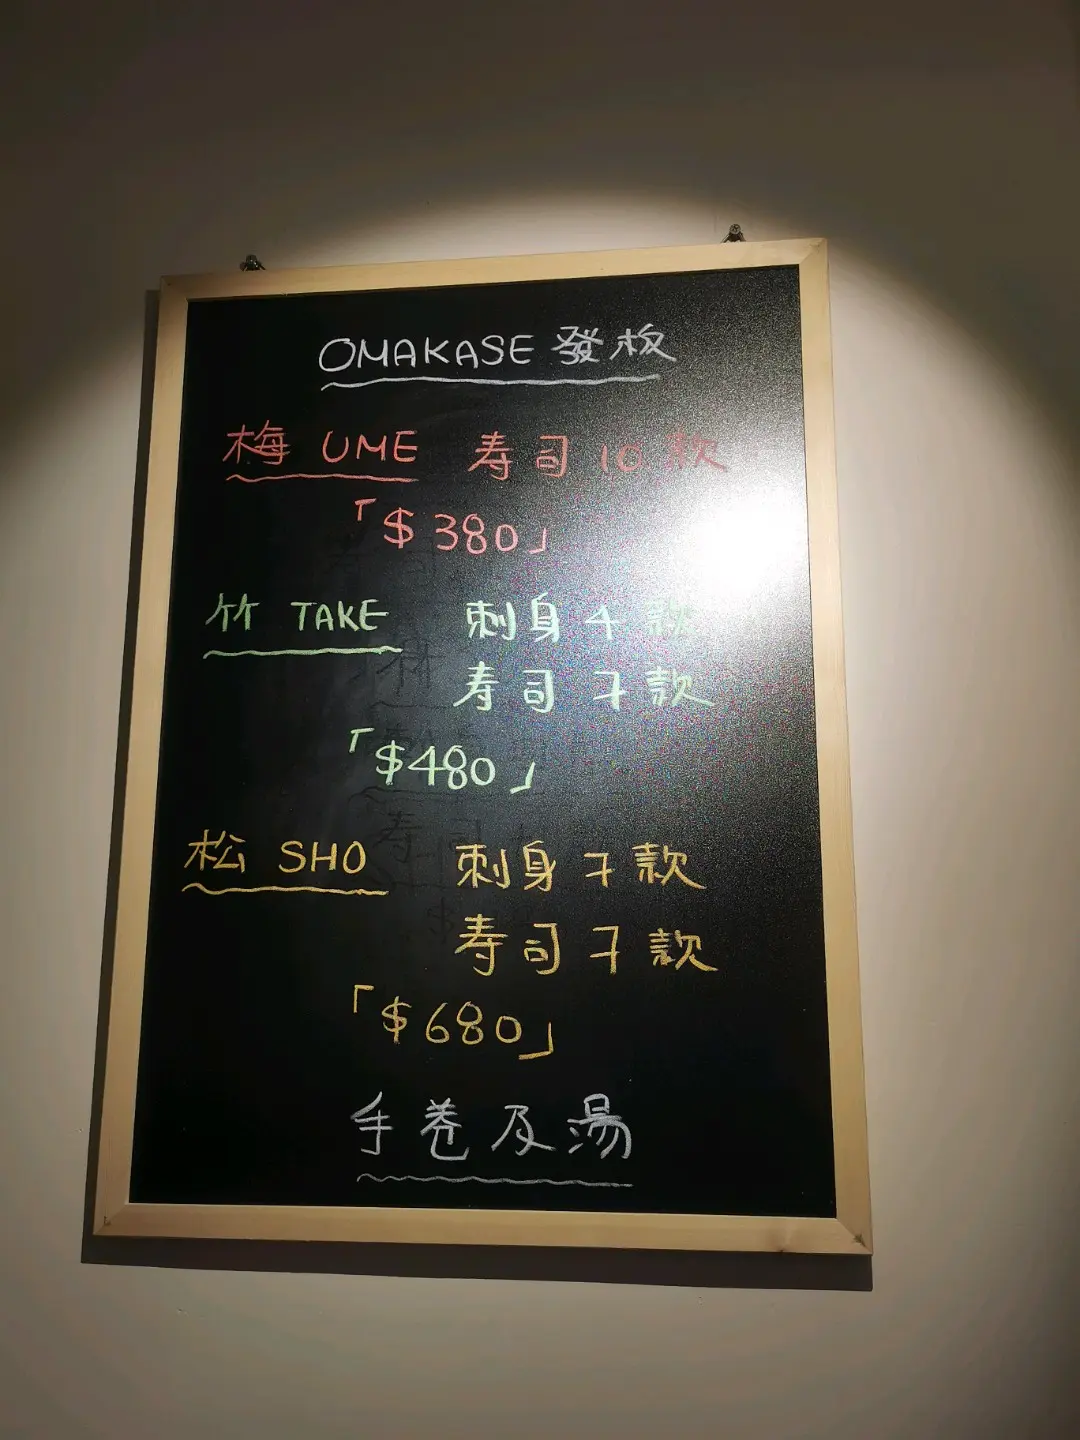 OMAKASE 發板
梅 UME 寿司 10 款
「$380」
竹 TAKE 刺身 4 款
寿司 7 款
「$480」
松 SHO 刺身 7 款
寿司 7 款
「$680」
手卷及湯